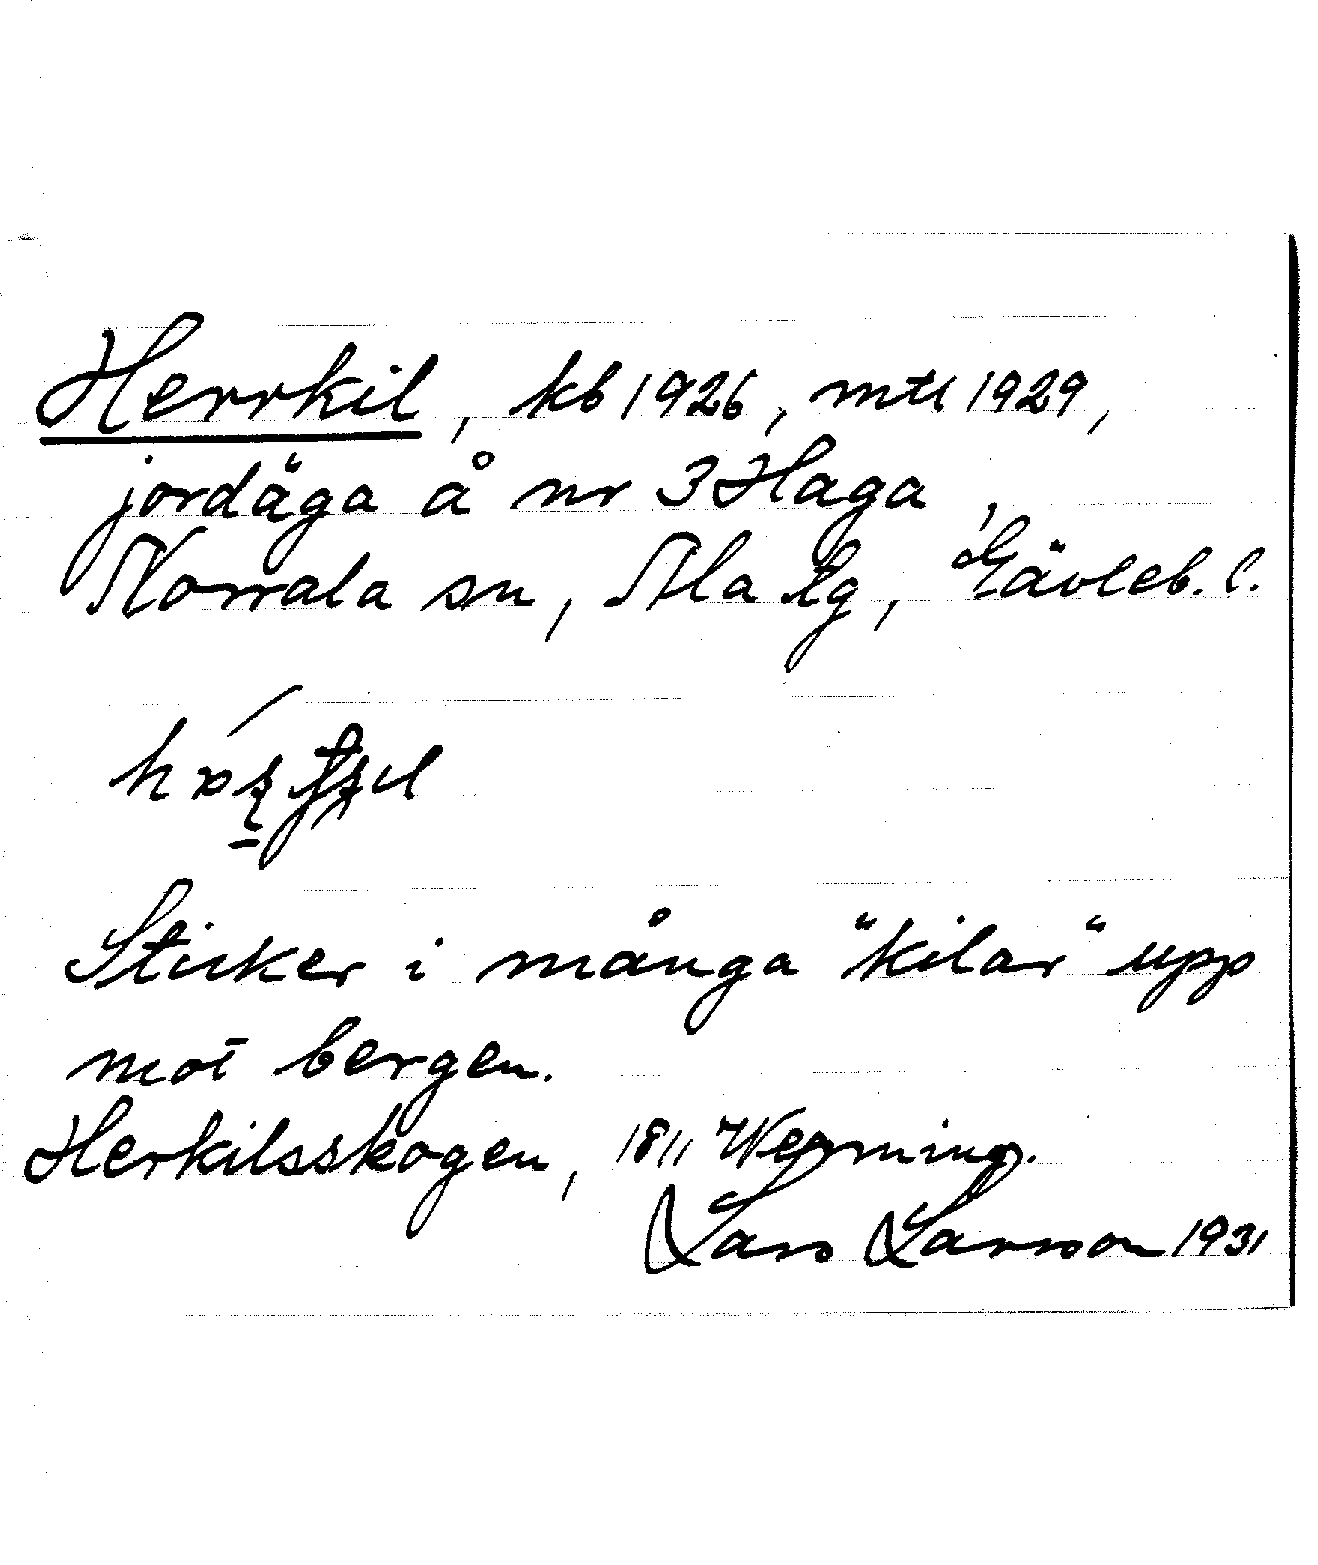 Herrkil, kb 1926, mtl 1929,
jordäga å nr 3 Haga,
Norrala sn, Ala tg, Gävleb. l.
Sticker i många "kilar" upp
mot bergen.
Herkilsskogen, 1811
Lars Larsson 1931